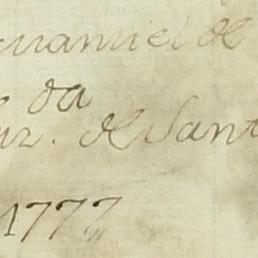 Emanuel de
da
Luz. de Sant
1777